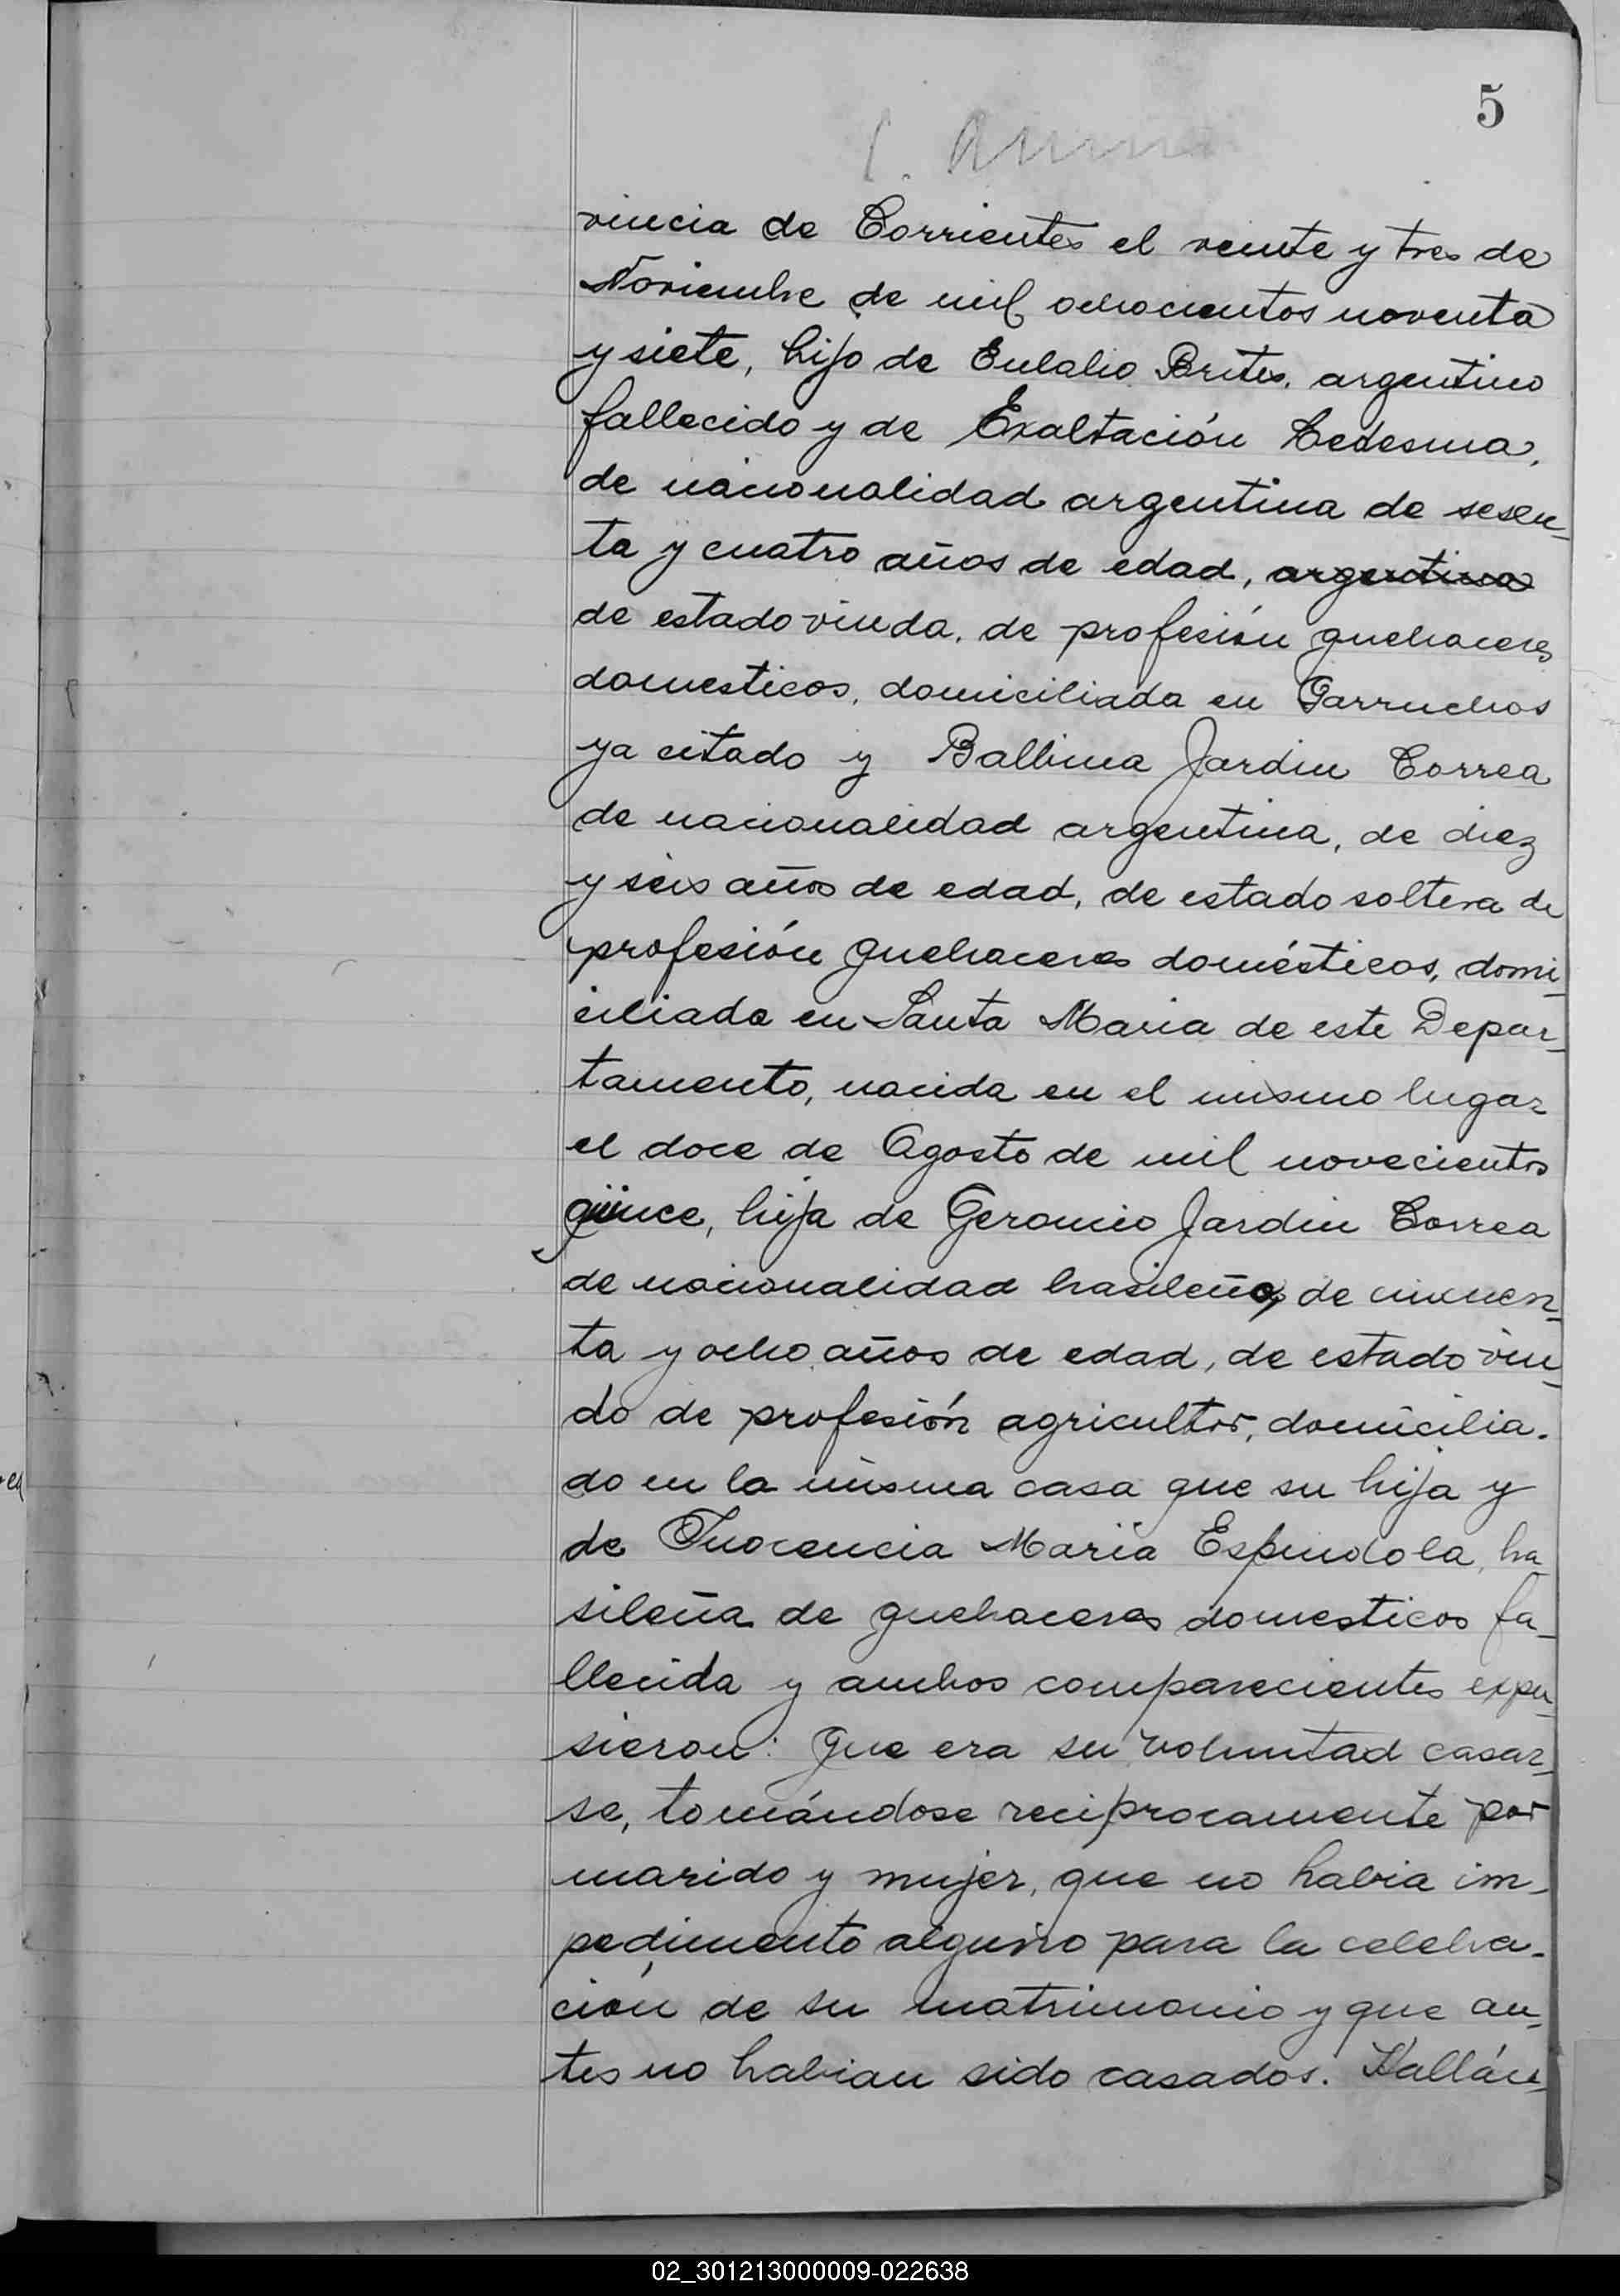 5
vincia de Corrientes el veinte y tres de
Noviembre de mil ochocientos noventa
y siete, hijo de Eulalio Brites, argentino
fallecido y de Exaltación Ledesma,
de nacionalidad argentina de sesen-
ta y cuatro años de edad, argentina
de estado viuda, de profesión quehaceres
domesticos, domiciliada en Garruchos
ya citado y Balbina Jardin Correa
de nacionalidad argentina, de diez
y seis años de edad, de estado soltera de
profesión quehaceres domésticos, domi-
ciliada en Santa Maria de este Depar-
tamento, nacida en el mismo lugar
el doce de Agosto de mil novecientos
quince, hija de Geronio Jardin Correa
de nacionalidad brasileña, de cincuen-
ta y ocho años de edad, de estado viu-
do de profesión agricultor, domicilia-
do en la misma casa que su hija y
de Inocencia Maria Espindola, bra
sileña de quehaceres domesticos fa-
llecida y ambos comparecientes expu-
sieron: Que era su voluntad casar-
se, tomándose reciprocamente por
marido y mujer, que no habia im-
pedimento alguno para la celebra-
ción de su matrimonio y que an-
tes no habian sido casados. Hallán-
02_301213000009-022638